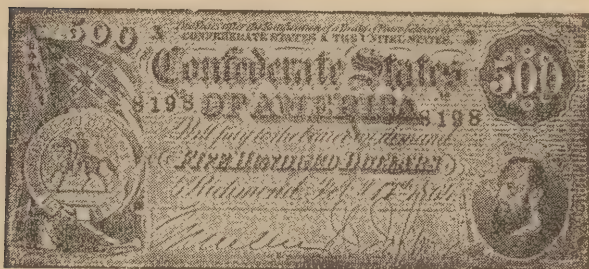 500
Two Years after the Ratification of a Treaty of Peace between the
CONFEDERATE STATES & THE UNITED STATES
Confederate States
500
8198
OF AMERICA
8198
Will pay to the bearer on demand
FIVE HUNDRED DOLLARS
Richmond, Feby. 17th 1864